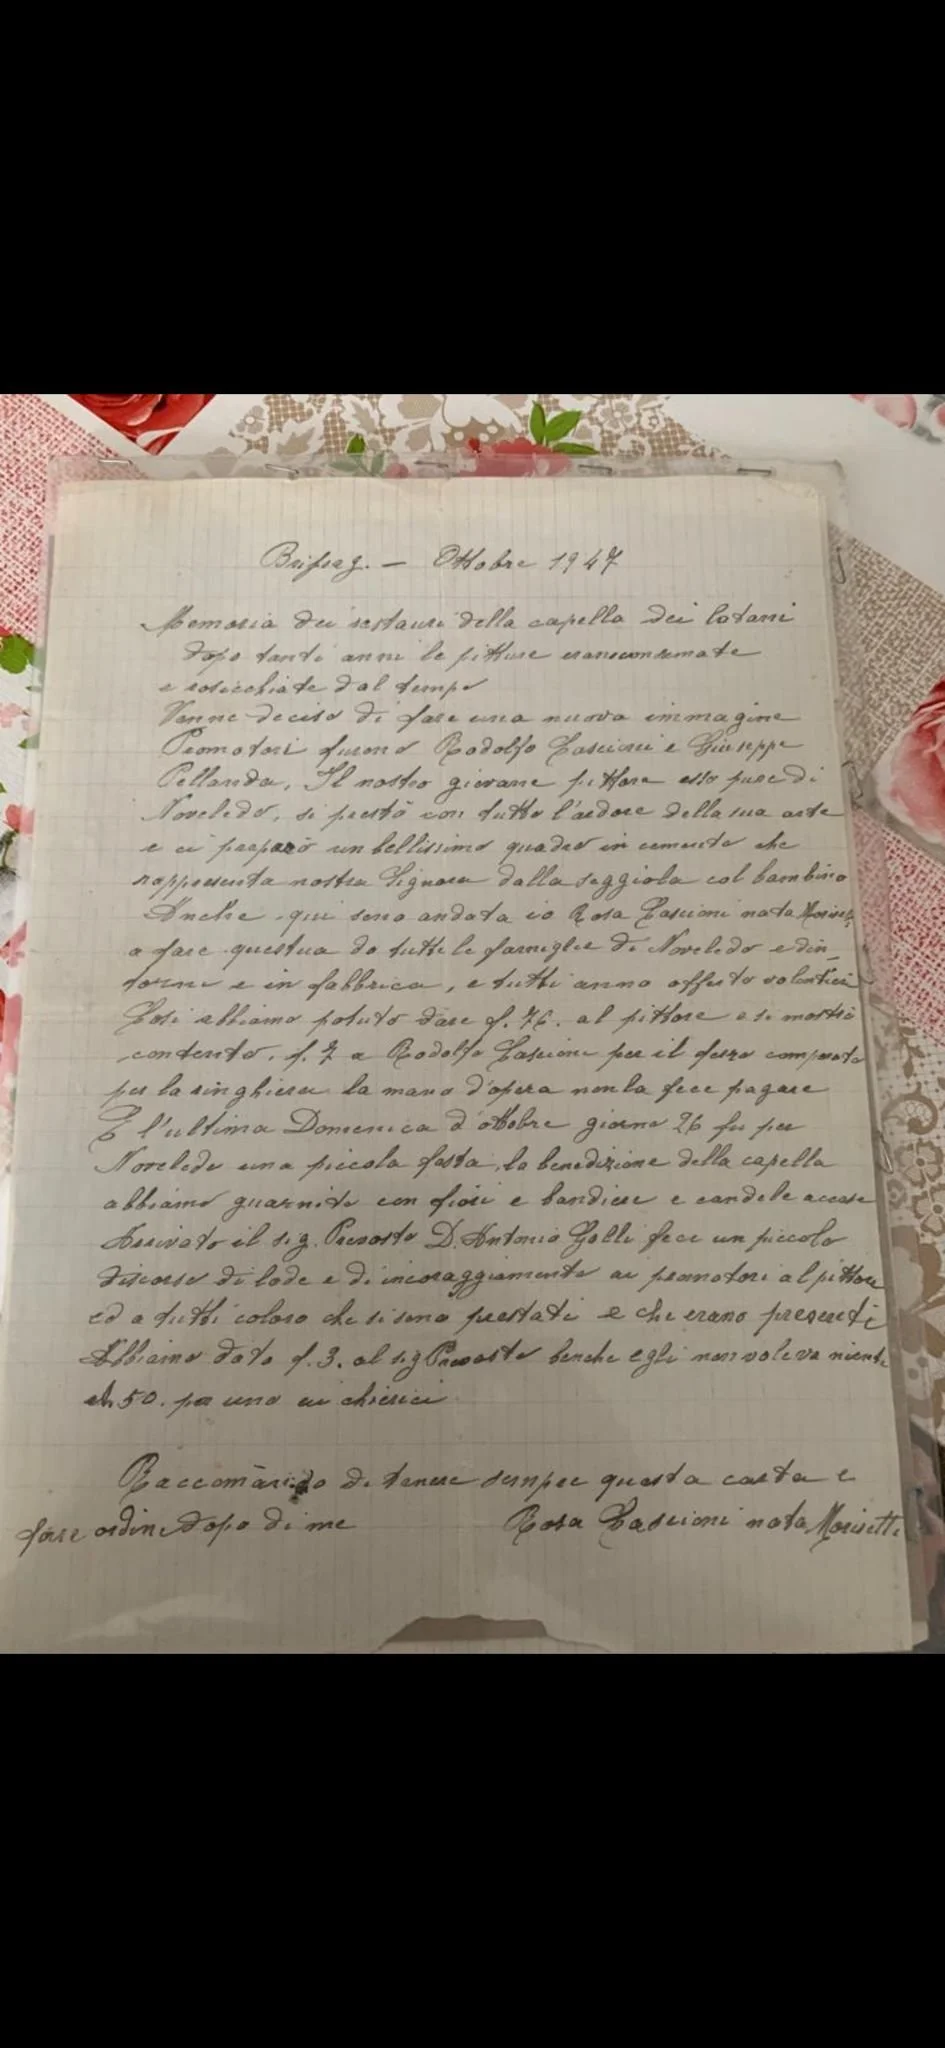 Brissag. — Ottobre 1947
Memoria dei restauri della capella dei Lotani
dopo tanti anni le pitture erano consumate
e rosicchiate dal tempo
Venne deciso di fare una nuova immagine
Promotori furono Rodolfo Cascioni e Giuseppe
Pellanda. Il nostro giovane pittore esso pure di
Noveledo, si prestò con tutto l'ardore della sua arte
e ci preparò un bellissimo quadro in cemento che
rappresenta nostra Signora dalla seggiola col bambino
Anche qui sono andata io Rosa Cascioni nata Morisetti
a fare questua da tutti le famiglie di Noveledo e din_
torni e in fabbrica, e tutti anno offerto volentieri
Così abbiamo potuto dare f. 76. al pittore e si mostrò
contento, f. 7 a Rodolfo Cascioni per il ferro comperato
per la ringhiera la mano d'opera non la fece pagare
E l'ultima Domenica d'ottobre giorno 26 fu per
Noveledo una piccola festa, la benedizione della capella
abbiamo guarnito con fiori e bandiere e candele accese
Arrivato il sig. Prevosto D. Antonio Galli fece un piccolo
discorso di lode e di incoraggiamento ai promotori al pittore
ed a tutti coloro che si sono prestati e che erano presenti
Abbiamo dato f. 3. al sig Prevosto benche egli non voleva niente
50. per uno ai chierici
Raccomando di tenere sempre questa carta e
fare ordine dopo di me Rosa Cascioni nata Morisetti